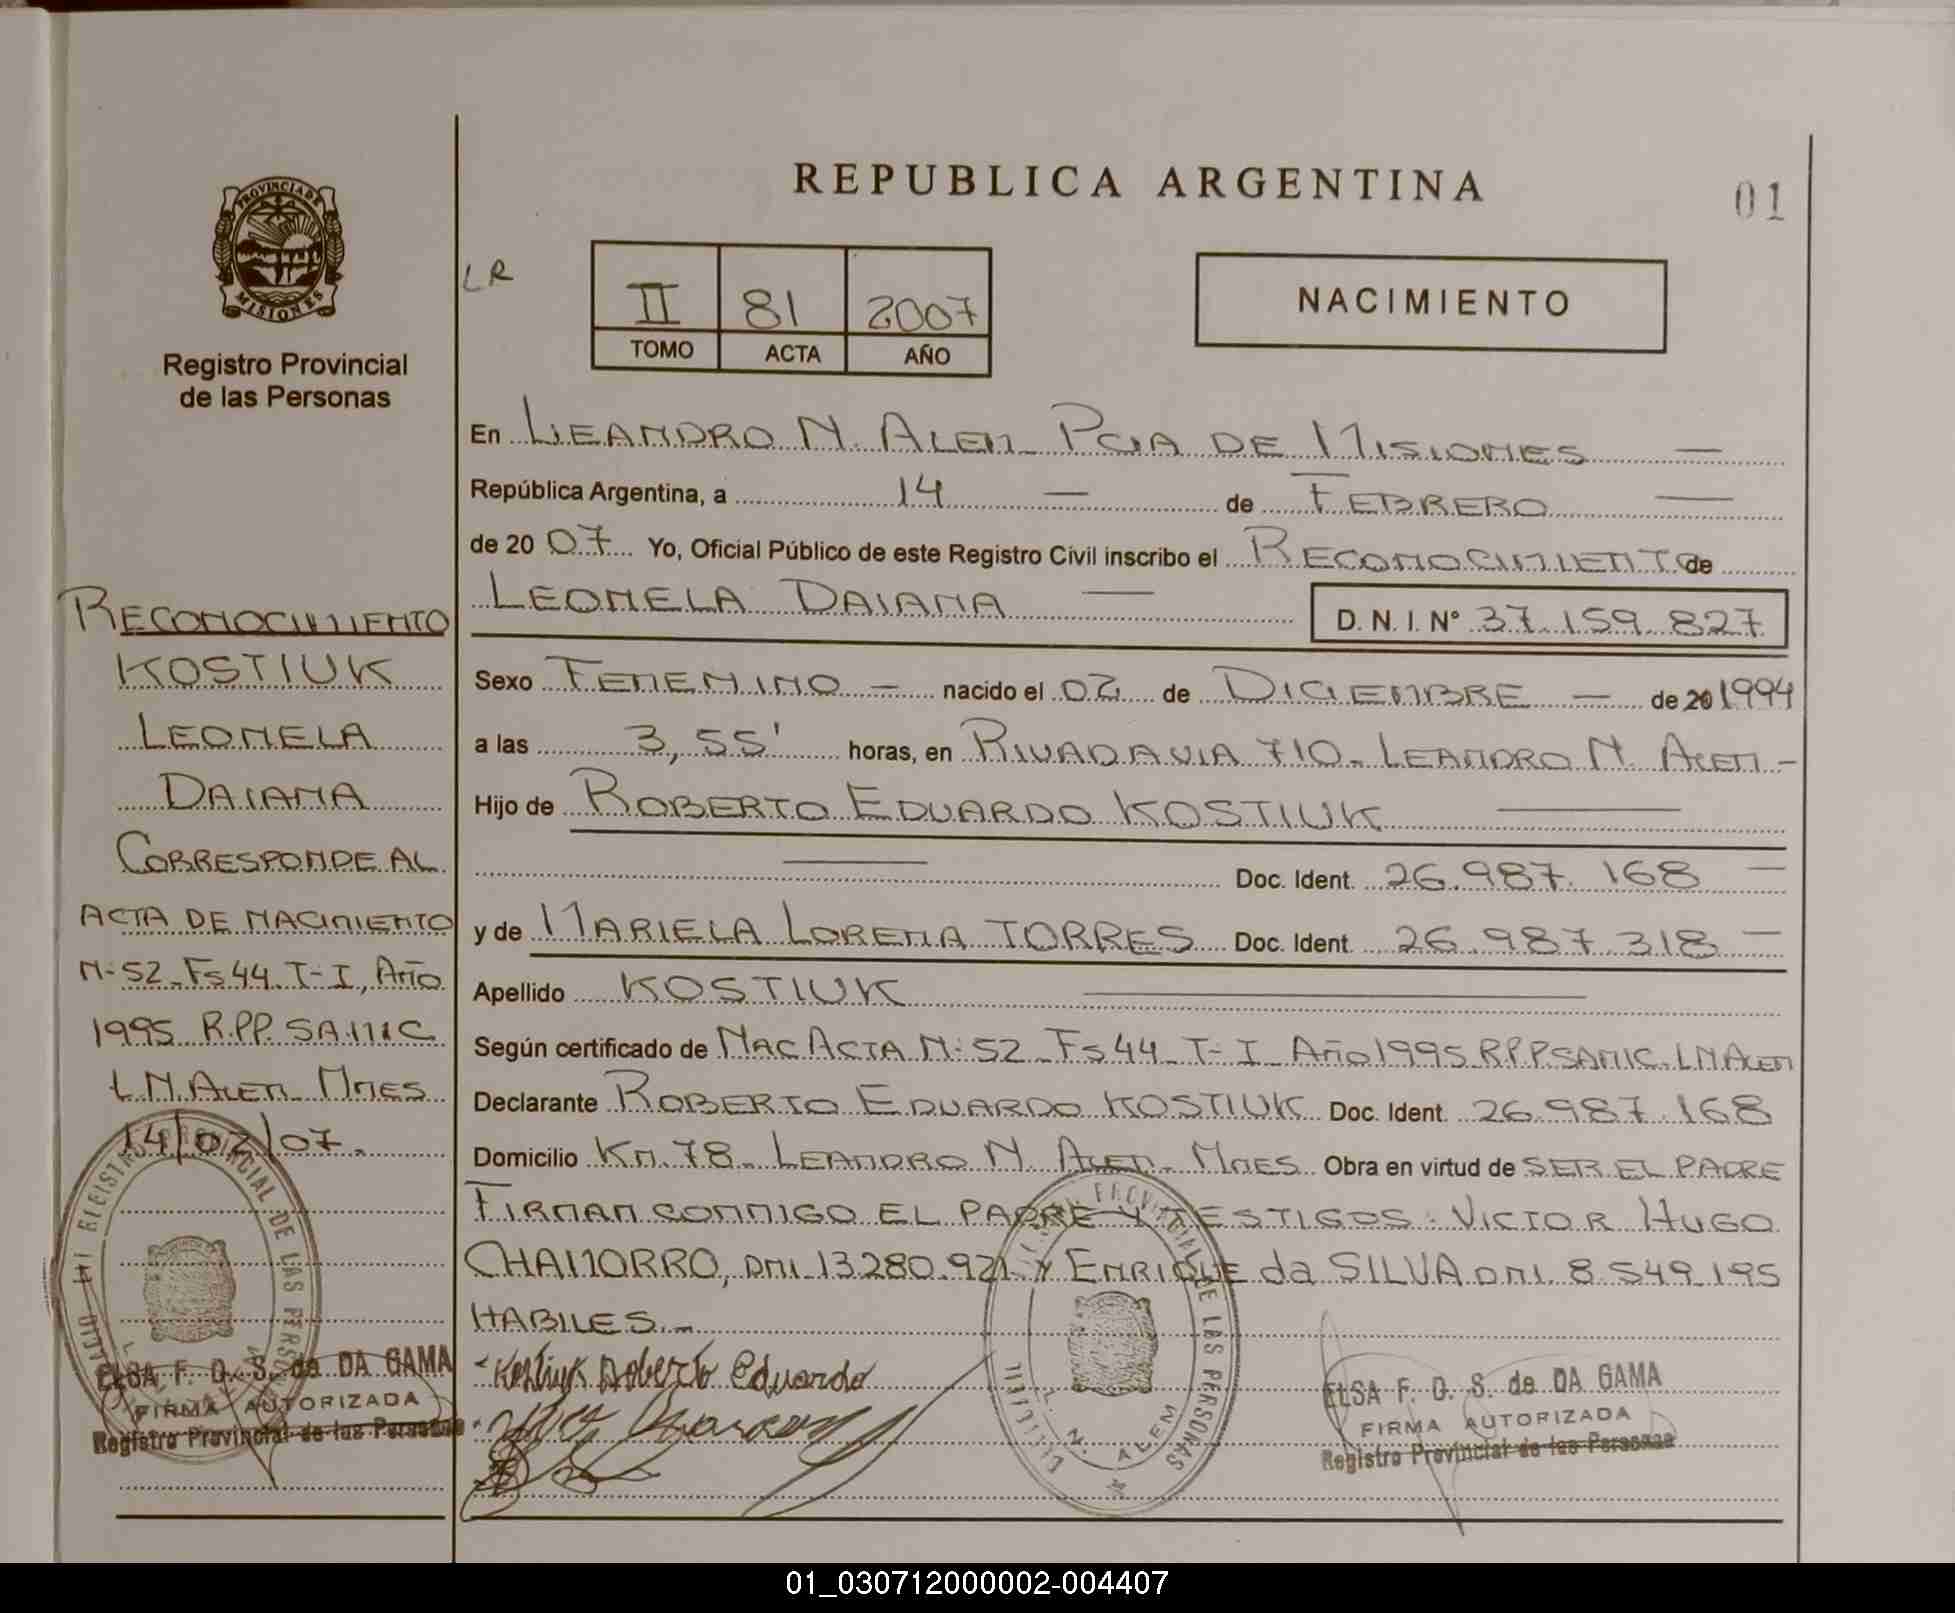 REPUBLICA ARGENTINA
01
PROVINCIA DE
MISIONES
Registro Provincial
de las Personas
LR
II 81 2007
TOMO ACTA AÑO
NACIMIENTO
En LEANDRO N. ALEM PCIA DE MISIONES —
República Argentina, a 14 — de FEBRERO —
de 20 07 Yo, Oficial Público de este Registro Civil inscribo el RECONOCIMIENTO de
LEONELA DAIANA — D. N. I. N° 37.159.827
Sexo FEMENINO — nacido el 02 de DICIEMBRE — de 20 1994
a las 3,55' horas, en RIVADAVIA 710. LEANDRO N. ALEM -
Hijo de ROBERTO EDUARDO KOSTIUK —
— Doc. Ident. 26.987.168 —
y de MARIELA LORENA TORRES Doc. Ident. 26.987.318 —
Apellido KOSTIUK —
Según certificado de NAC ACTA N: 52 _ FS 44 _ T- I _ AÑO 1995 R.P.P SAMIC. L N ALEM
Declarante ROBERTO EDUARDO KOSTIUK Doc. Ident. 26.987.168
Domicilio KM. 78_ LEANDRO N. ALEM_ MNES Obra en virtud de SER EL PADRE
FIRMAN CONMIGO EL PADRE Y TESTIGOS: VICTOR HUGO
CHAMORRO, DNI. 13.280.921 Y ENRIQUE da SILVA DNI. 8.549.195
HABILES._
Kostiuk Roberto Eduardo
RECONOCIMIENTO
KOSTIUK
LEONELA
DAIANA
CORRESPONDE AL
ACTA DE NACIMIENTO
N: 52_ FS 44. T- I, AÑO
1995 R.P.P. SAMIC
L.N. ALEM MNES
14/02/07.
PROVINCIAL DE LAS PERSONAS
ELSA F. O. S. de DA GAMA
FIRMA AUTORIZADA
Registro Provincial de las Personas
PROVINCIAL DE LAS PERSONAS
L. N. ALEM
ELSA F. O. S. de DA GAMA
FIRMA AUTORIZADA
Registro Provincial de las Personas
01_030712000002-004407